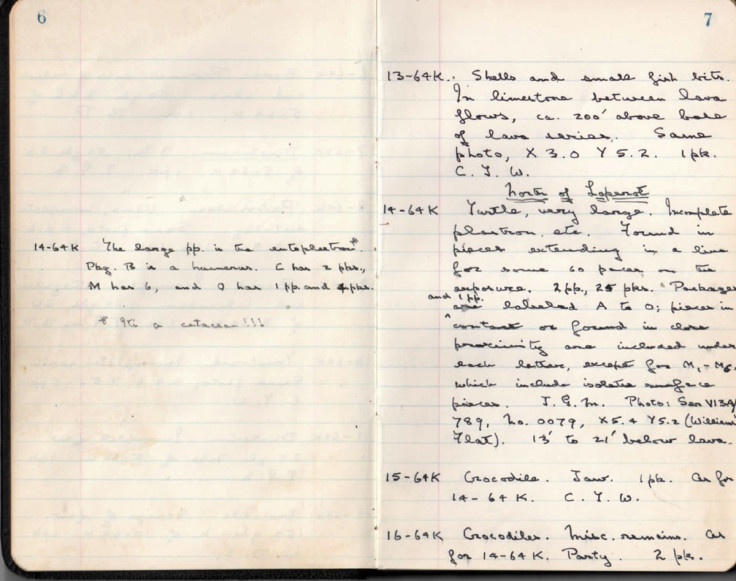 6
14-64K The large pp. is the entoplastron*.
Pkg. B is a humerus. C has 2 pks.,
M has 6, and O has 1 pp. and 4 pks.
* It's a cetacean!!!
7
13-64K. Shells and small fish bits.
In limestone between lava
flows, ca. 200' above base
of lava series. Same
photo, X 3.0 Y 5.2. 1 pk.
C. T. W.
North of Loperot
14-64K Turtle, very large. Incomplete
plastron, etc. Found in
pieces extending in a line
for some 60 paces on the
exposure. 2 pp., 25 pks. Packages
and 1 pp.
are labeled A to O; pieces in
contact or found in close
proximity are included under
each letter, except for M₁-M₆,
which include isolated surface
pieces. J. G. M. Photo: Ser V13A/
789, no. 0079, X 5.4 Y 5.2 (William
Flat). 13' to 21' below lava.
15-64K Crocodile. Jaw. 1 pk. As for
14-64K. C. T. W.
16-64K Crocodiles. Misc. remains. As
for 14-64K. Party. 2 pk.